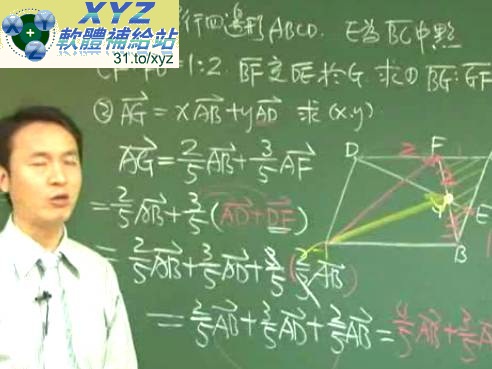 XYZ
軟體補給站
31.to/xyz
行四邊形ABCD. E為BC中點
=1:2. BF交DE於G. 求① BG:GF
② AG = xAB+yAD 求(x,y)
AG = 2/5 AB + 3/5 AF
= 2/5 AB + 3/5 (AD+DF)
= 2/5 AB + 3/5 AD + 3/5 (2/3 AB)
= 2/5 AB + 3/5 AD + 2/5 AB = 4/5 AB + 3/5 A
D 2 F
G E
B